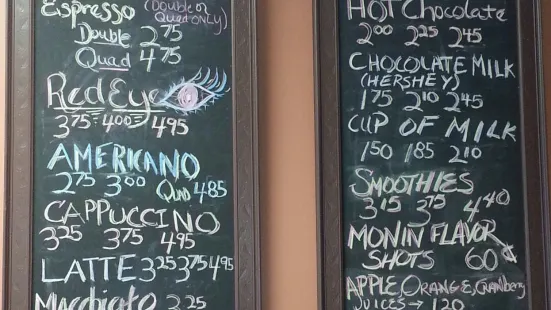 Espresso (Double or
Quad only)
Double 2 75
Quad 4 75
Red Eye
3 75 4 00 4 95
AMERICANO
2 75 3 00 Quad 4 85
CAPPUCCINO
3 25 3 75 4 95
LATTE 3 25 3 75 4 95
Macchiato 3 25
HOT Chocolate
2 00 2 25 2 45
CHOCOLATE MILK
(HERSHEY)
1 75 2 10 2 45
CUP OF MILK
1 50 1 85 2 10
SMOOTHIES
3 15 3 75 4 40
MONIN FLAVOR
SHOTS 60¢
APPLE, ORANGE, CRANBERRY
JUICES → 1 20